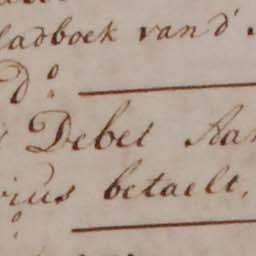 ladboek van d'
d°
Debet Aan
rius betaelt,